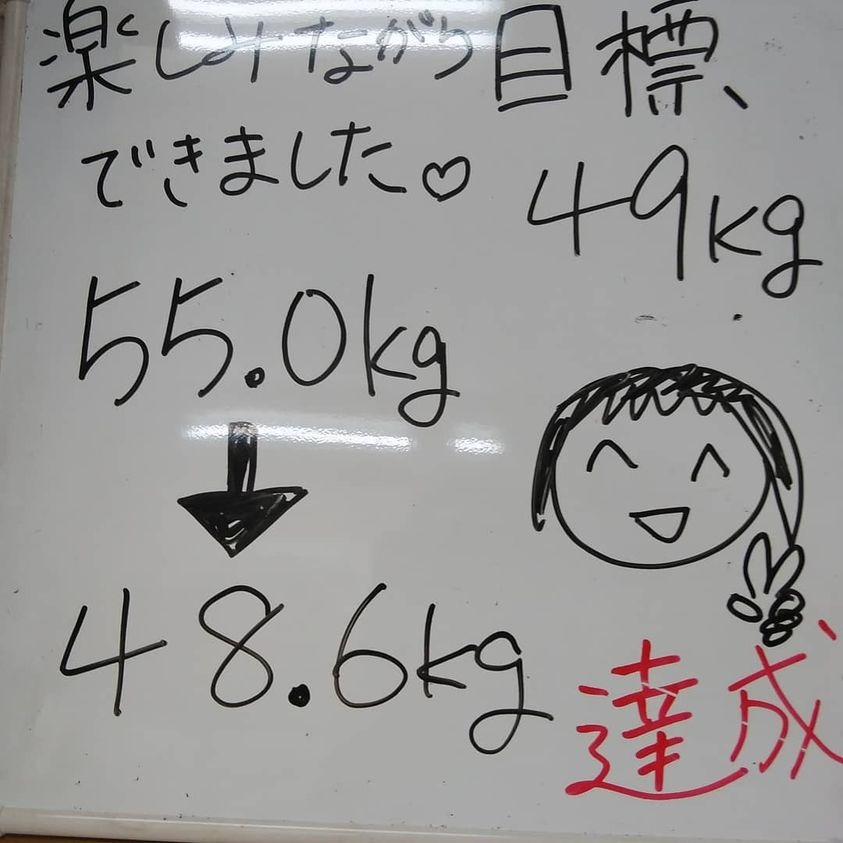 楽しみながら目標、
できました♡
49kg
55.0kg
↓
48.6kg
達成